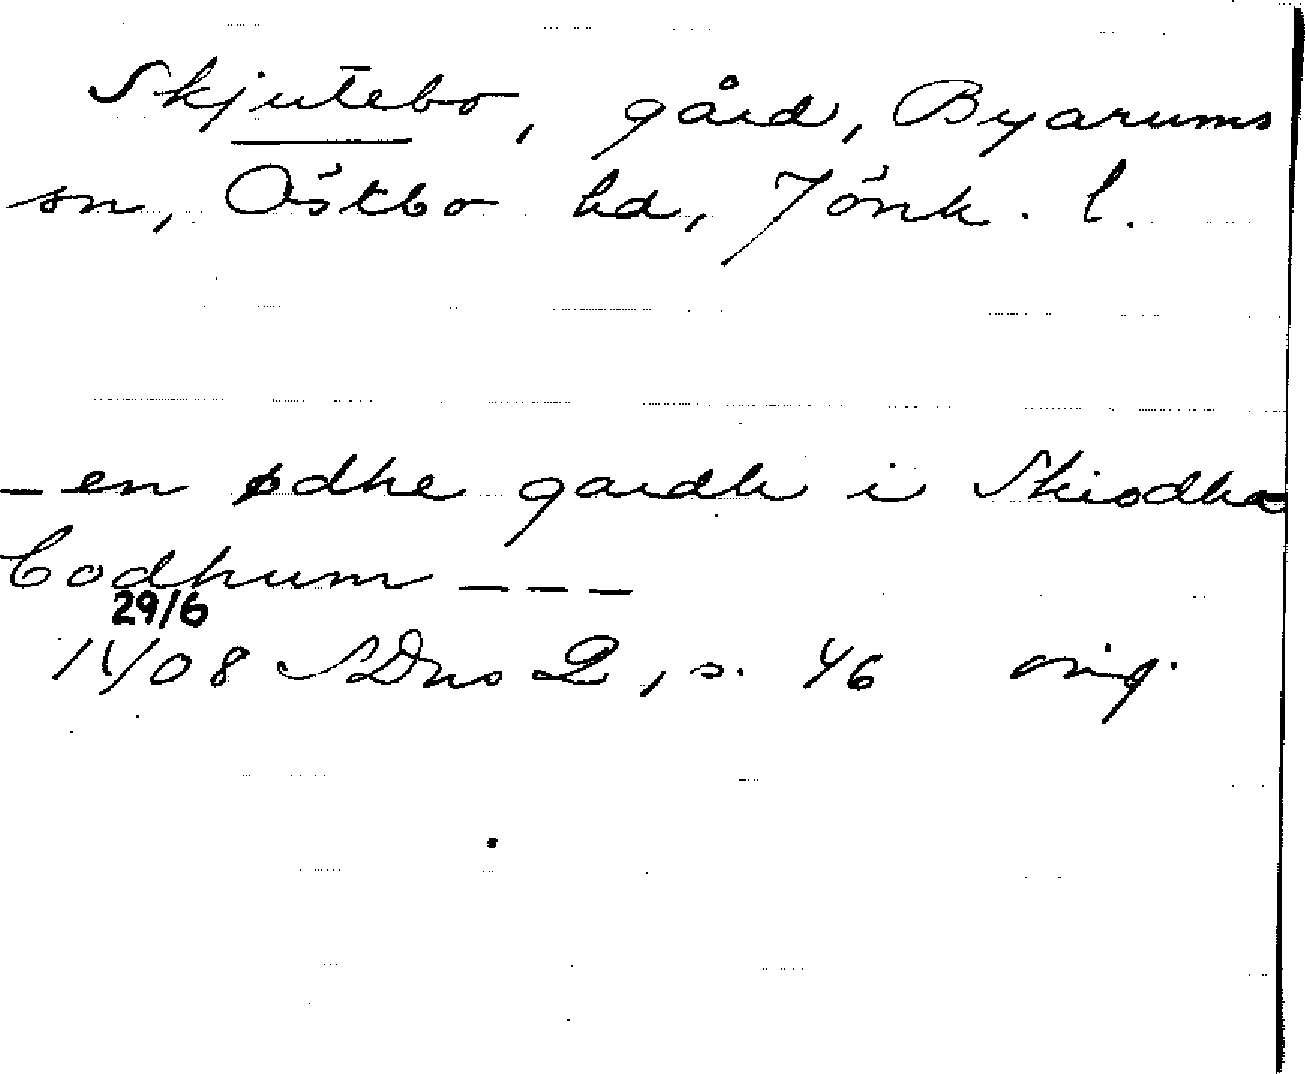 Skjutebo, gård, Byarums
sn, Östbo hd, Jönk. l.
– en ødhe gardh i Skiodha
bodhum – – –
29/6
1408 SDns 2, s. 46 orig.